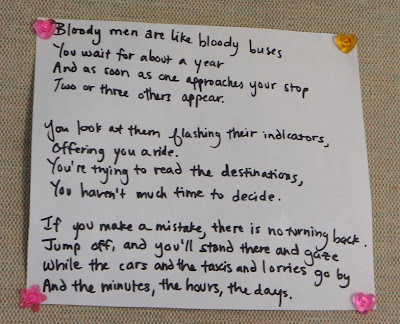 Bloody men are like bloody buses
You wait for about a year
And as soon as one approaches your stop
Two or three others appear.

You look at them flashing their indicators,
Offering you a ride.
You're trying to read the destinations,
You haven't much time to decide.

If you make a mistake, there is no turning back.
Jump off, and you'll stand there and gaze
While the cars and the taxis and lorries go by
And the minutes, the hours, the days.